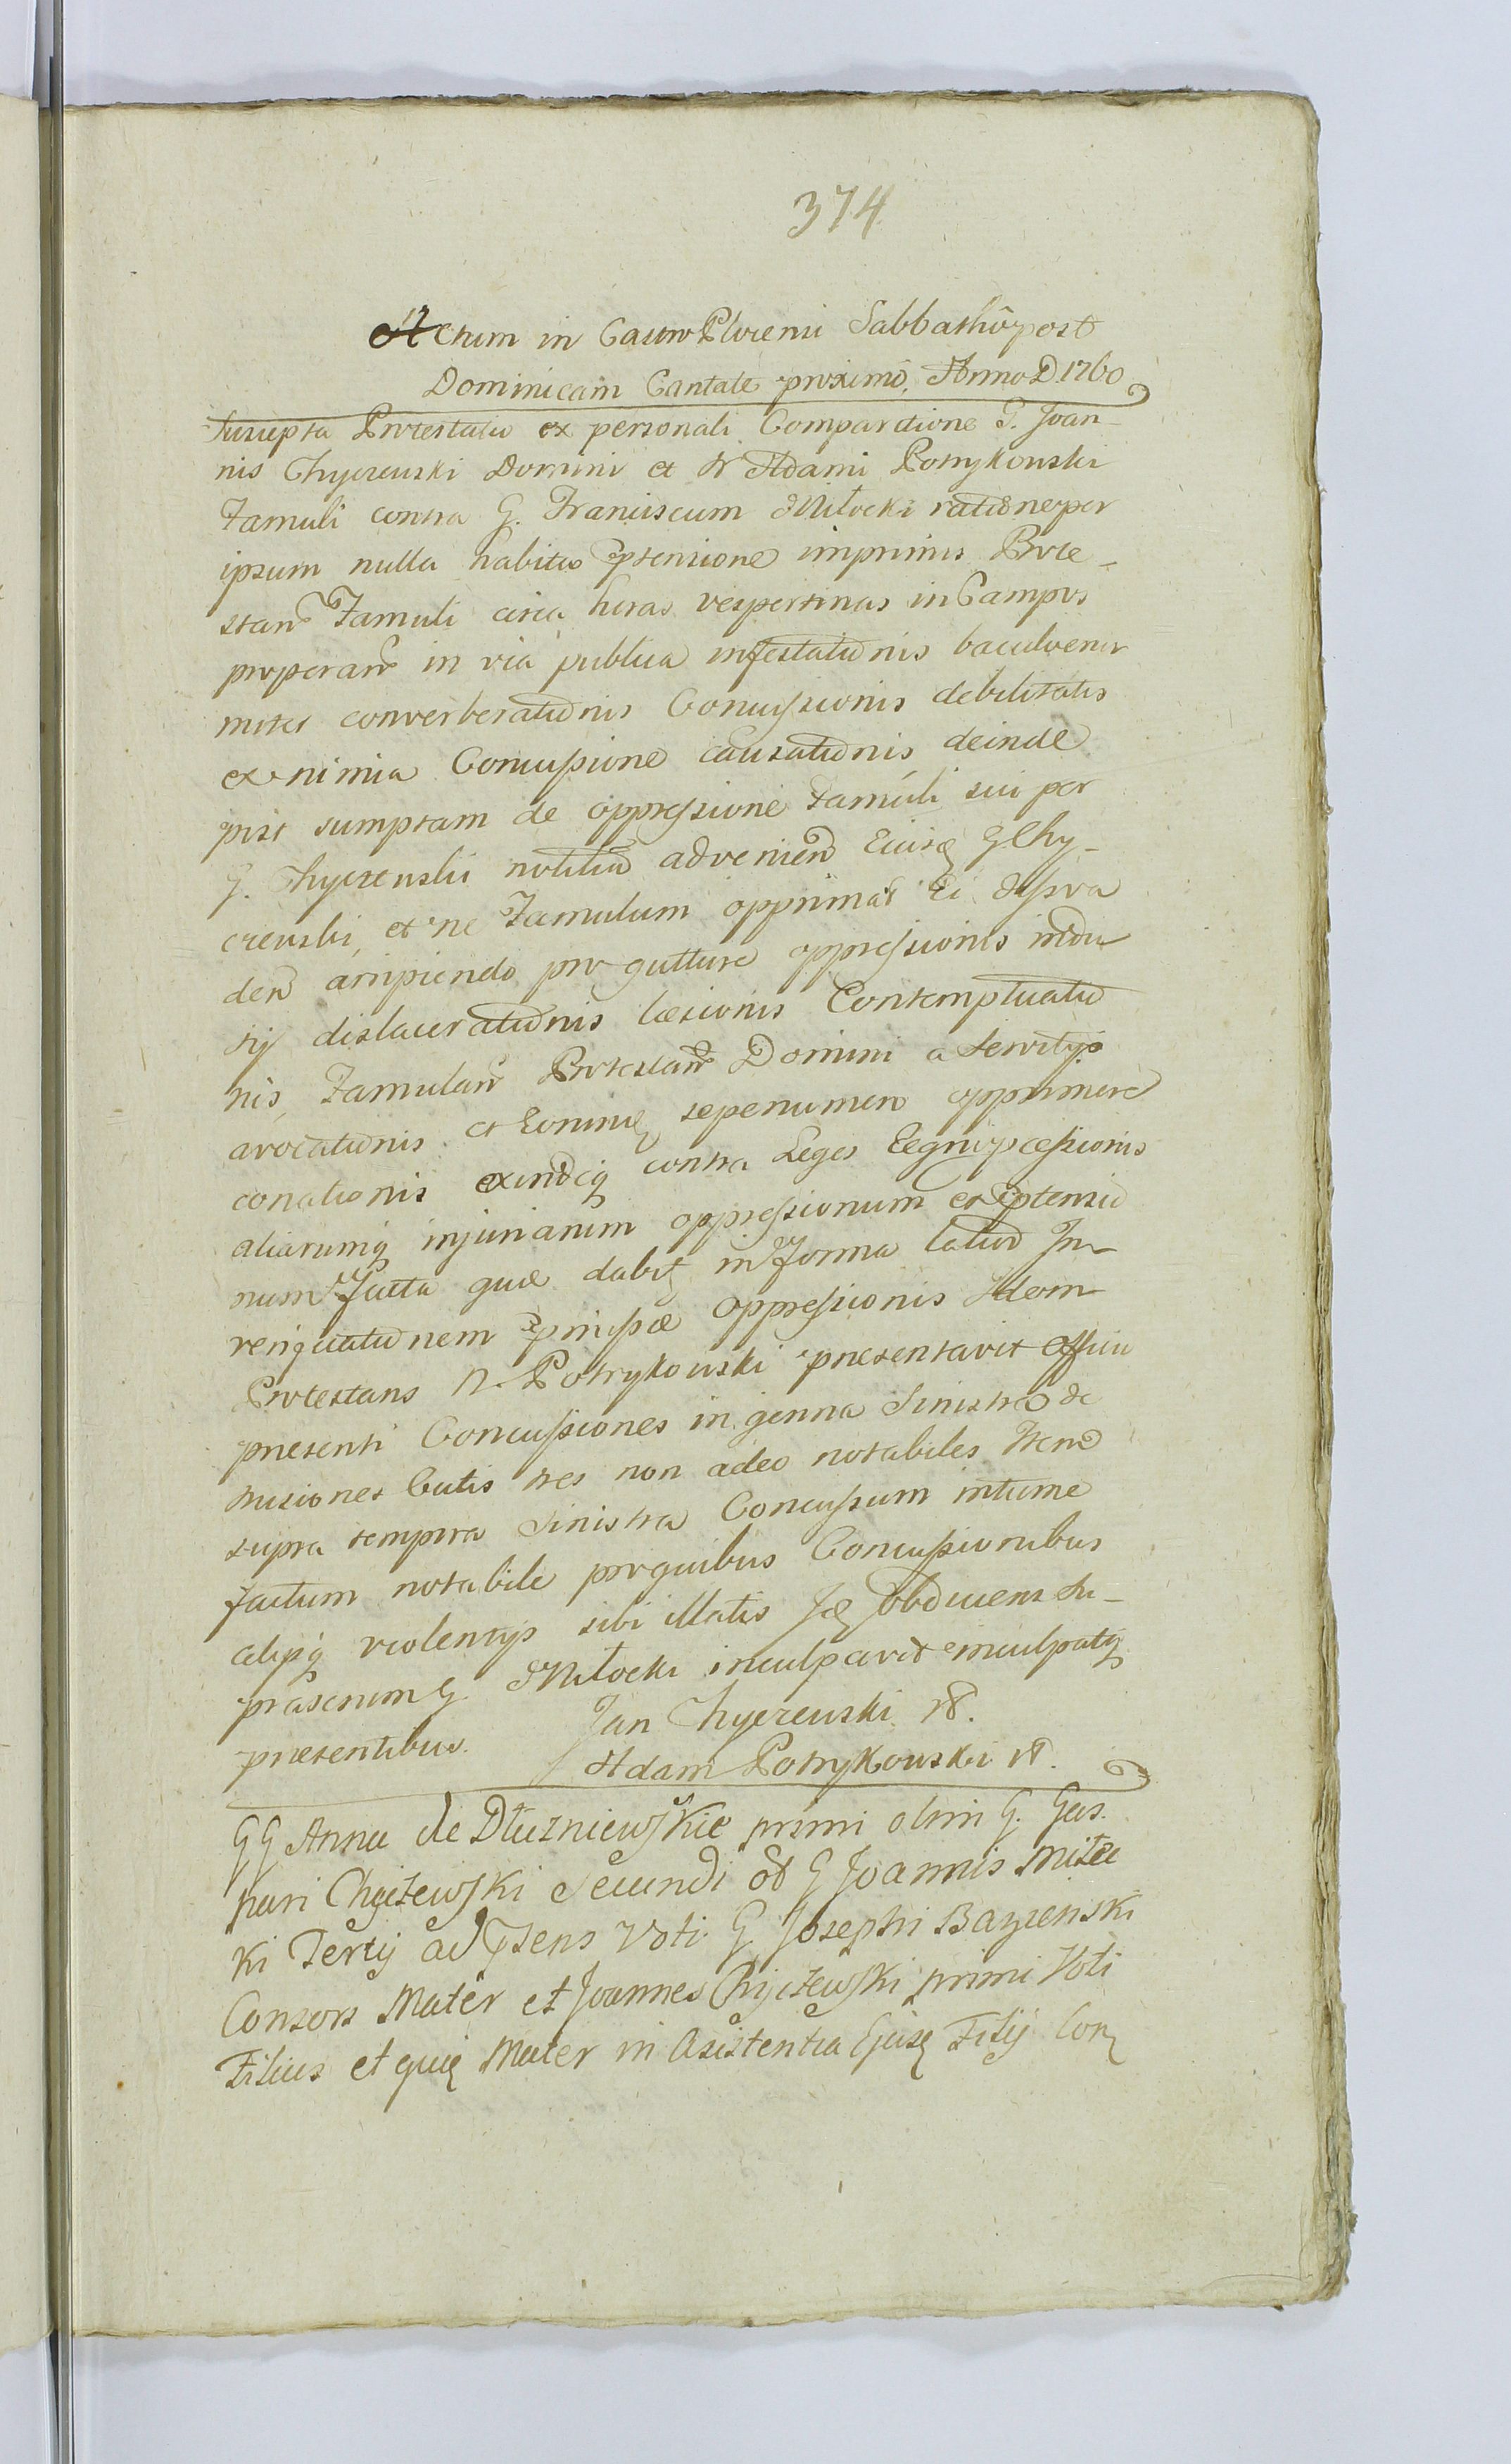 374
Actum in Castro Plocensi Sabbatho post
Dominicam Cantate proximo, Anno D. 1760
Suscepta Protestatio ex personali Comparitione G. Joan-
nis Chyczewski Domini et N Adami Potrykowski
Famuli contra G. Franciscum Miłocki ratione per
ipsum nulla habita ptensione imprimis Prote-
stan Famuli circa horas vespertinas in Campos
properan in via publica infestationis baculo enor
miter converberationis Concussionis debilitatis
ex nimia Concussione causationis deinde
post sumptam de oppressione Famuli sui per
G. Chyczewski notitia advenien Eiusq G Chy-
czewski, et ne Famulum opprimat Ei dissva
den arripiendo pro gutture oppressionis indu
sij dislacerationis læsionis Contemptuatio
nis, Famulan Protestan Domini a Servitijs
avocationis et Eorumq sepenumero opprimere
conationis exindeq contra Leges Regni pæssionis
aliarumq injuriarum oppressionum et ptensio
num Facta quæ dabit in Forma latio In-
reriguationem præmissæ Oppressionis Idem
Protestans N. Potrykowski presentavit officio
presenti Concussiones in genua Sinistra de
trusiones Cutis tres non adeo notabiles Item
supra tempora Sinistra Concussum intume
factum notabile pro quibus Concussionibus
alijsq violentijs sibi illatis Idem obducens Su-
prascriptum G. Miłocki inculpavit inculpatq
presentibus. Jan Chyczewski N.
Adam Potrykowski N.
G G Anna de Dłuzniewskie primi olim G. Gas-
pari Chyczewski Secundi G Joannis Miłoc
ki Tertij ad psens Voti G. Josephi Bazyenski
Consors Mater et Joannes Chyczewski primi Voti
Filius et quiq Mater in Asistentia Ejusq Filij Corq